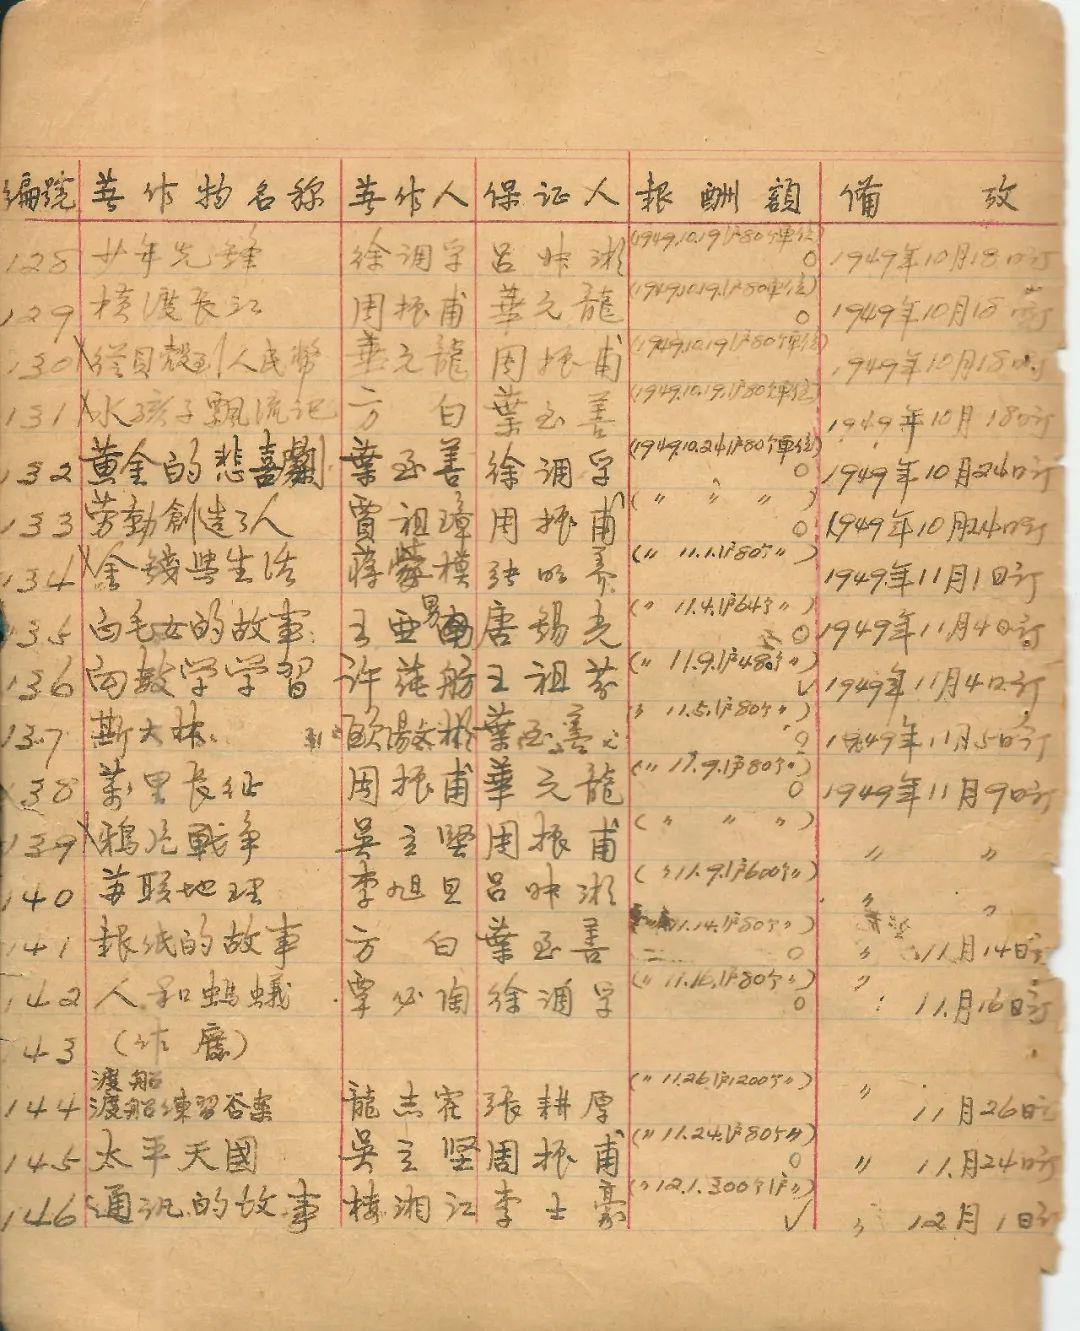 編號 著作物名称 著作人 保证人 報酬額 備攷
128 少年先鋒 徐调孚 吕叔湘 (1949.10.19.沪80个單位) 1949年10月18日订
129 横渡長江 周振甫 華元龍 (1949.10.19.沪80單位) 1949年10月18日订
130 從貝殼到人民幣 華元龍 周振甫 (1949.10.19.沪80單位) 1949年10月18日订
131 水孩子飄流记 方白 葉至善 (1949.10.19.沪80个單位) 1949年10月18日订
132 黄金的悲喜劇 葉至善 徐调孚 (1949.10.24.沪80个單位) 1949年10月24日订
133 劳動創造了人 賈祖璋 周振甫 (〃 〃 〃 〃) 1949年10月24日订
134 金錢與生活 蒋 模 (〃 11.1.沪80个〃) 1949年11月1日订
135 白毛女的故事 王亚男 唐锡光 (〃 11.4.沪64个〃) 1949年11月4日订
136 向数学学習 许莼舫 王祖芬 (〃 11.9.沪48个〃) 1949年11月4日订
137 斯大林 歐陽文彬 葉至善 (〃 11.5.沪80个〃) 1949年11月5日订
138 萬里長征 周振甫 華元龍 (〃 11.9.沪80个〃) 1949年11月9日订
139 鴉片戰争 吴立坚 周振甫 (〃 〃 〃) 〃 〃
140 苏联地理 李旭旦 吕叔湘 (〃 11.9.沪600个〃) 〃 〃
141 報紙的故事 方白 葉至善 11.14.沪80个〃) 〃 11月14日订
142 人和螞蟻 覃必陶 徐调孚 (〃 11.16.沪80个〃) 〃 11月16日订
143 (作廢)
渡船
144 渡船練習答案 龍志 張耕厚 (〃 11.26.沪1200个〃) 〃 11月26日订
145 太平天國 吴立坚 周振甫 (〃 11.24.沪80个〃) 〃 11月24日订
146 通讯的故事 楼湘江 李士豪 (〃 12.1. 00个沪〃) 〃 12月1日订